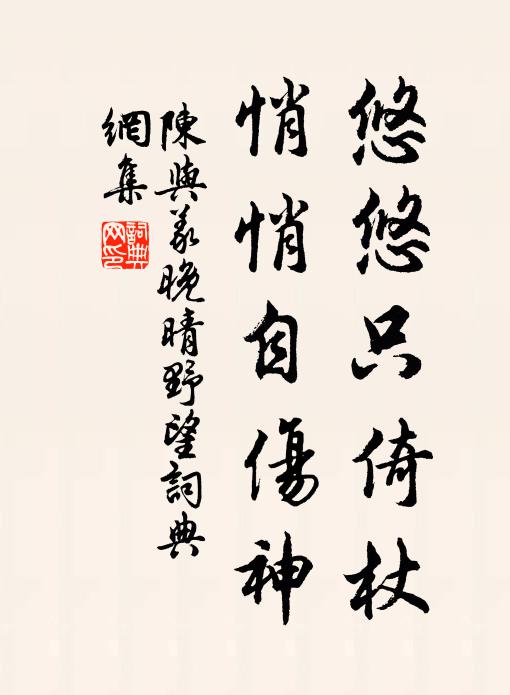 悠悠只倚杖
悄悄自傷神
陳與義晚晴野望詞典
網集
詞典網印